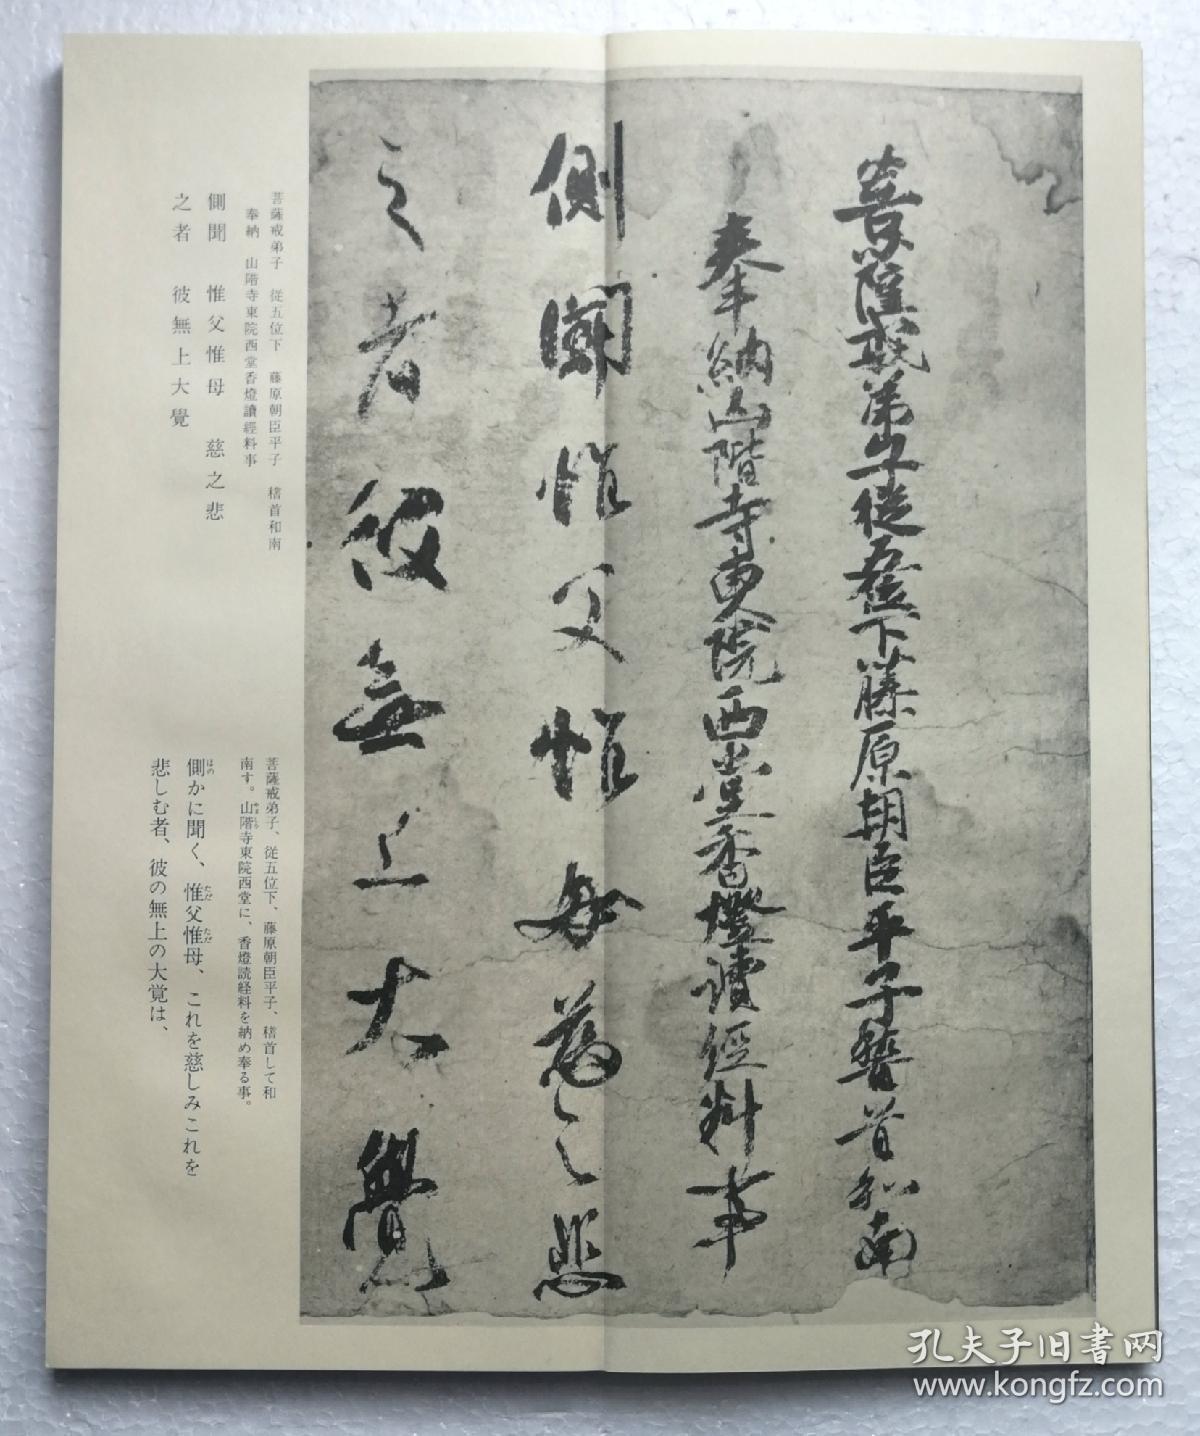 菩薩戒弟子從五位下藤原朝臣平子稽首和南
奉納山階寺東院西堂香燈讀經料事
側聞惟父惟母慈之悲
之者彼無上大覺
菩薩戒弟子　從五位下　藤原朝臣平子　稽首和南
奉納　山階寺東院西堂香燈讀經料事
側聞　惟父惟母　慈之悲
之者　彼無上大覺
菩薩戒弟子、従五位下、藤原朝臣平子、稽首して和
南す。山階寺東院西堂に、香燈読経料を納め奉る事。
側かに聞く、惟父惟母、これを慈しみこれを
悲しむ者、彼の無上の大覚は、
孔夫子旧书网
www.kongfz.com